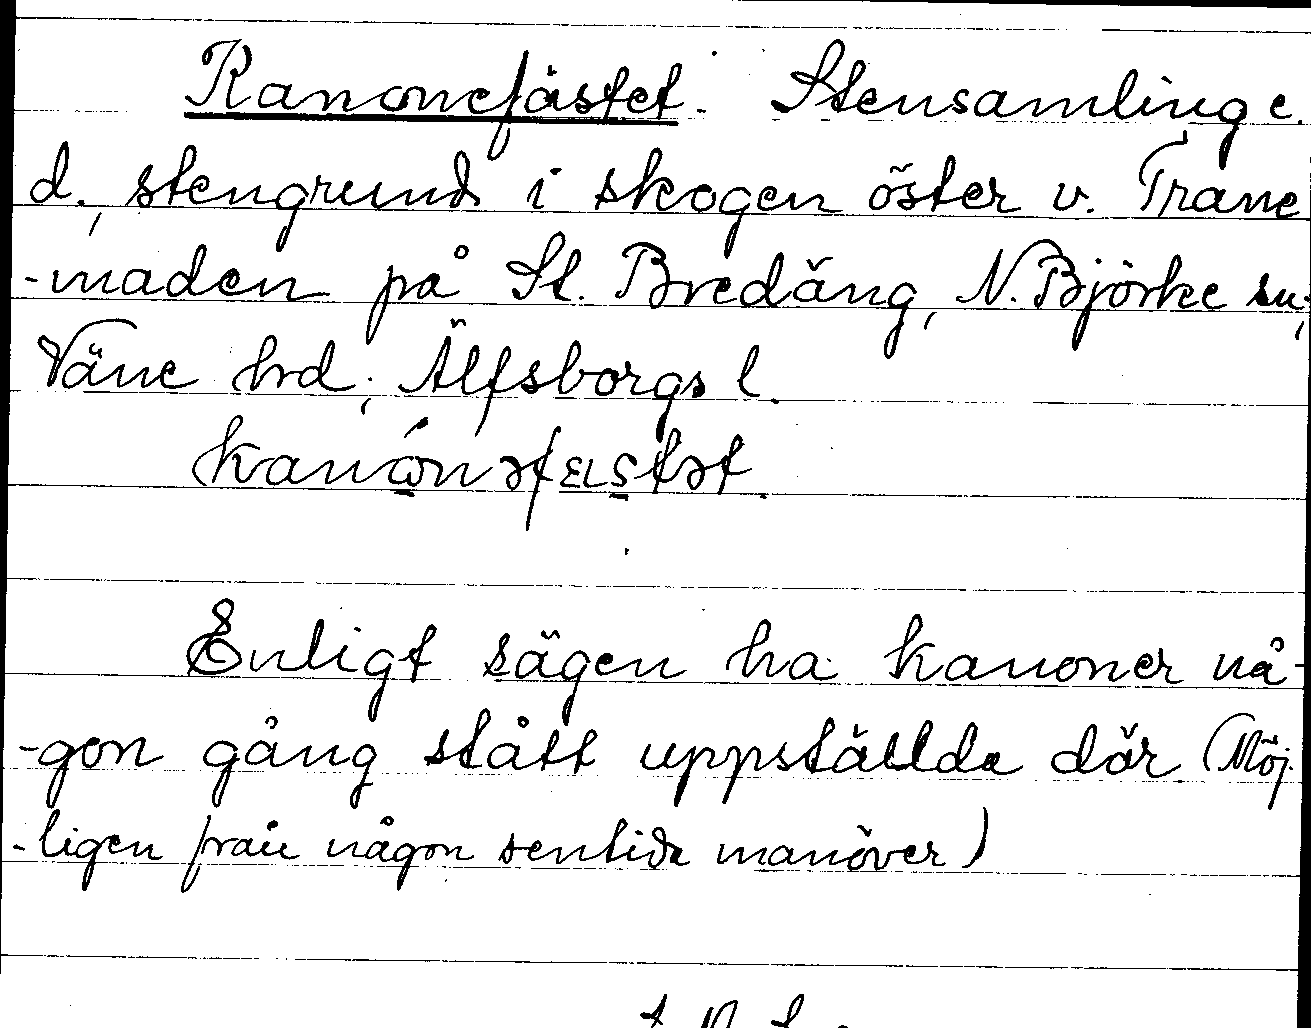 Kanonefästet. Stensamling e.
d., stengrund i skogen öster v. Trane
-maden på St. Bredäng, N. Björke sn;
Väne hrd; Älfsborgs l.
kanónəfɛʟstət.
Enligt sägen ha kanoner nå-
-gon gång stått uppställda där (Möj-
-ligen från någon sentida manöver)